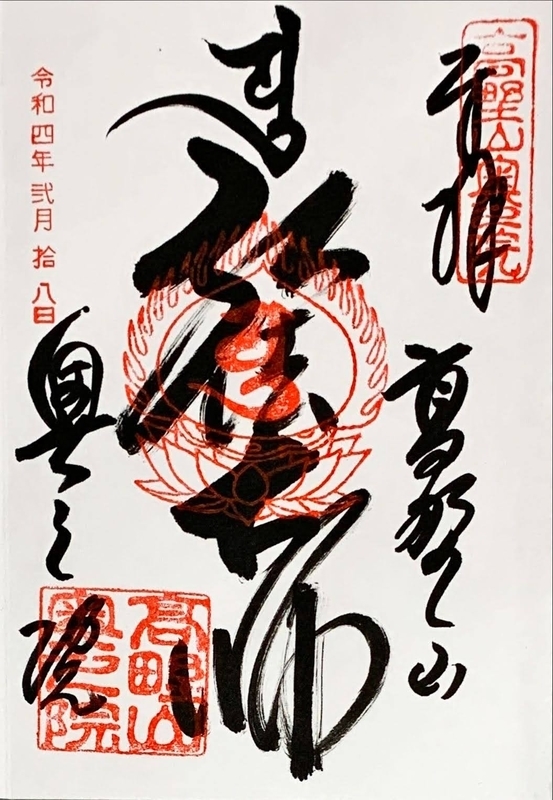 高野山奥之院
奉拝
高野山
弘法大師
令和四年 弐月 拾八日
奥之院
高野山
奥之院